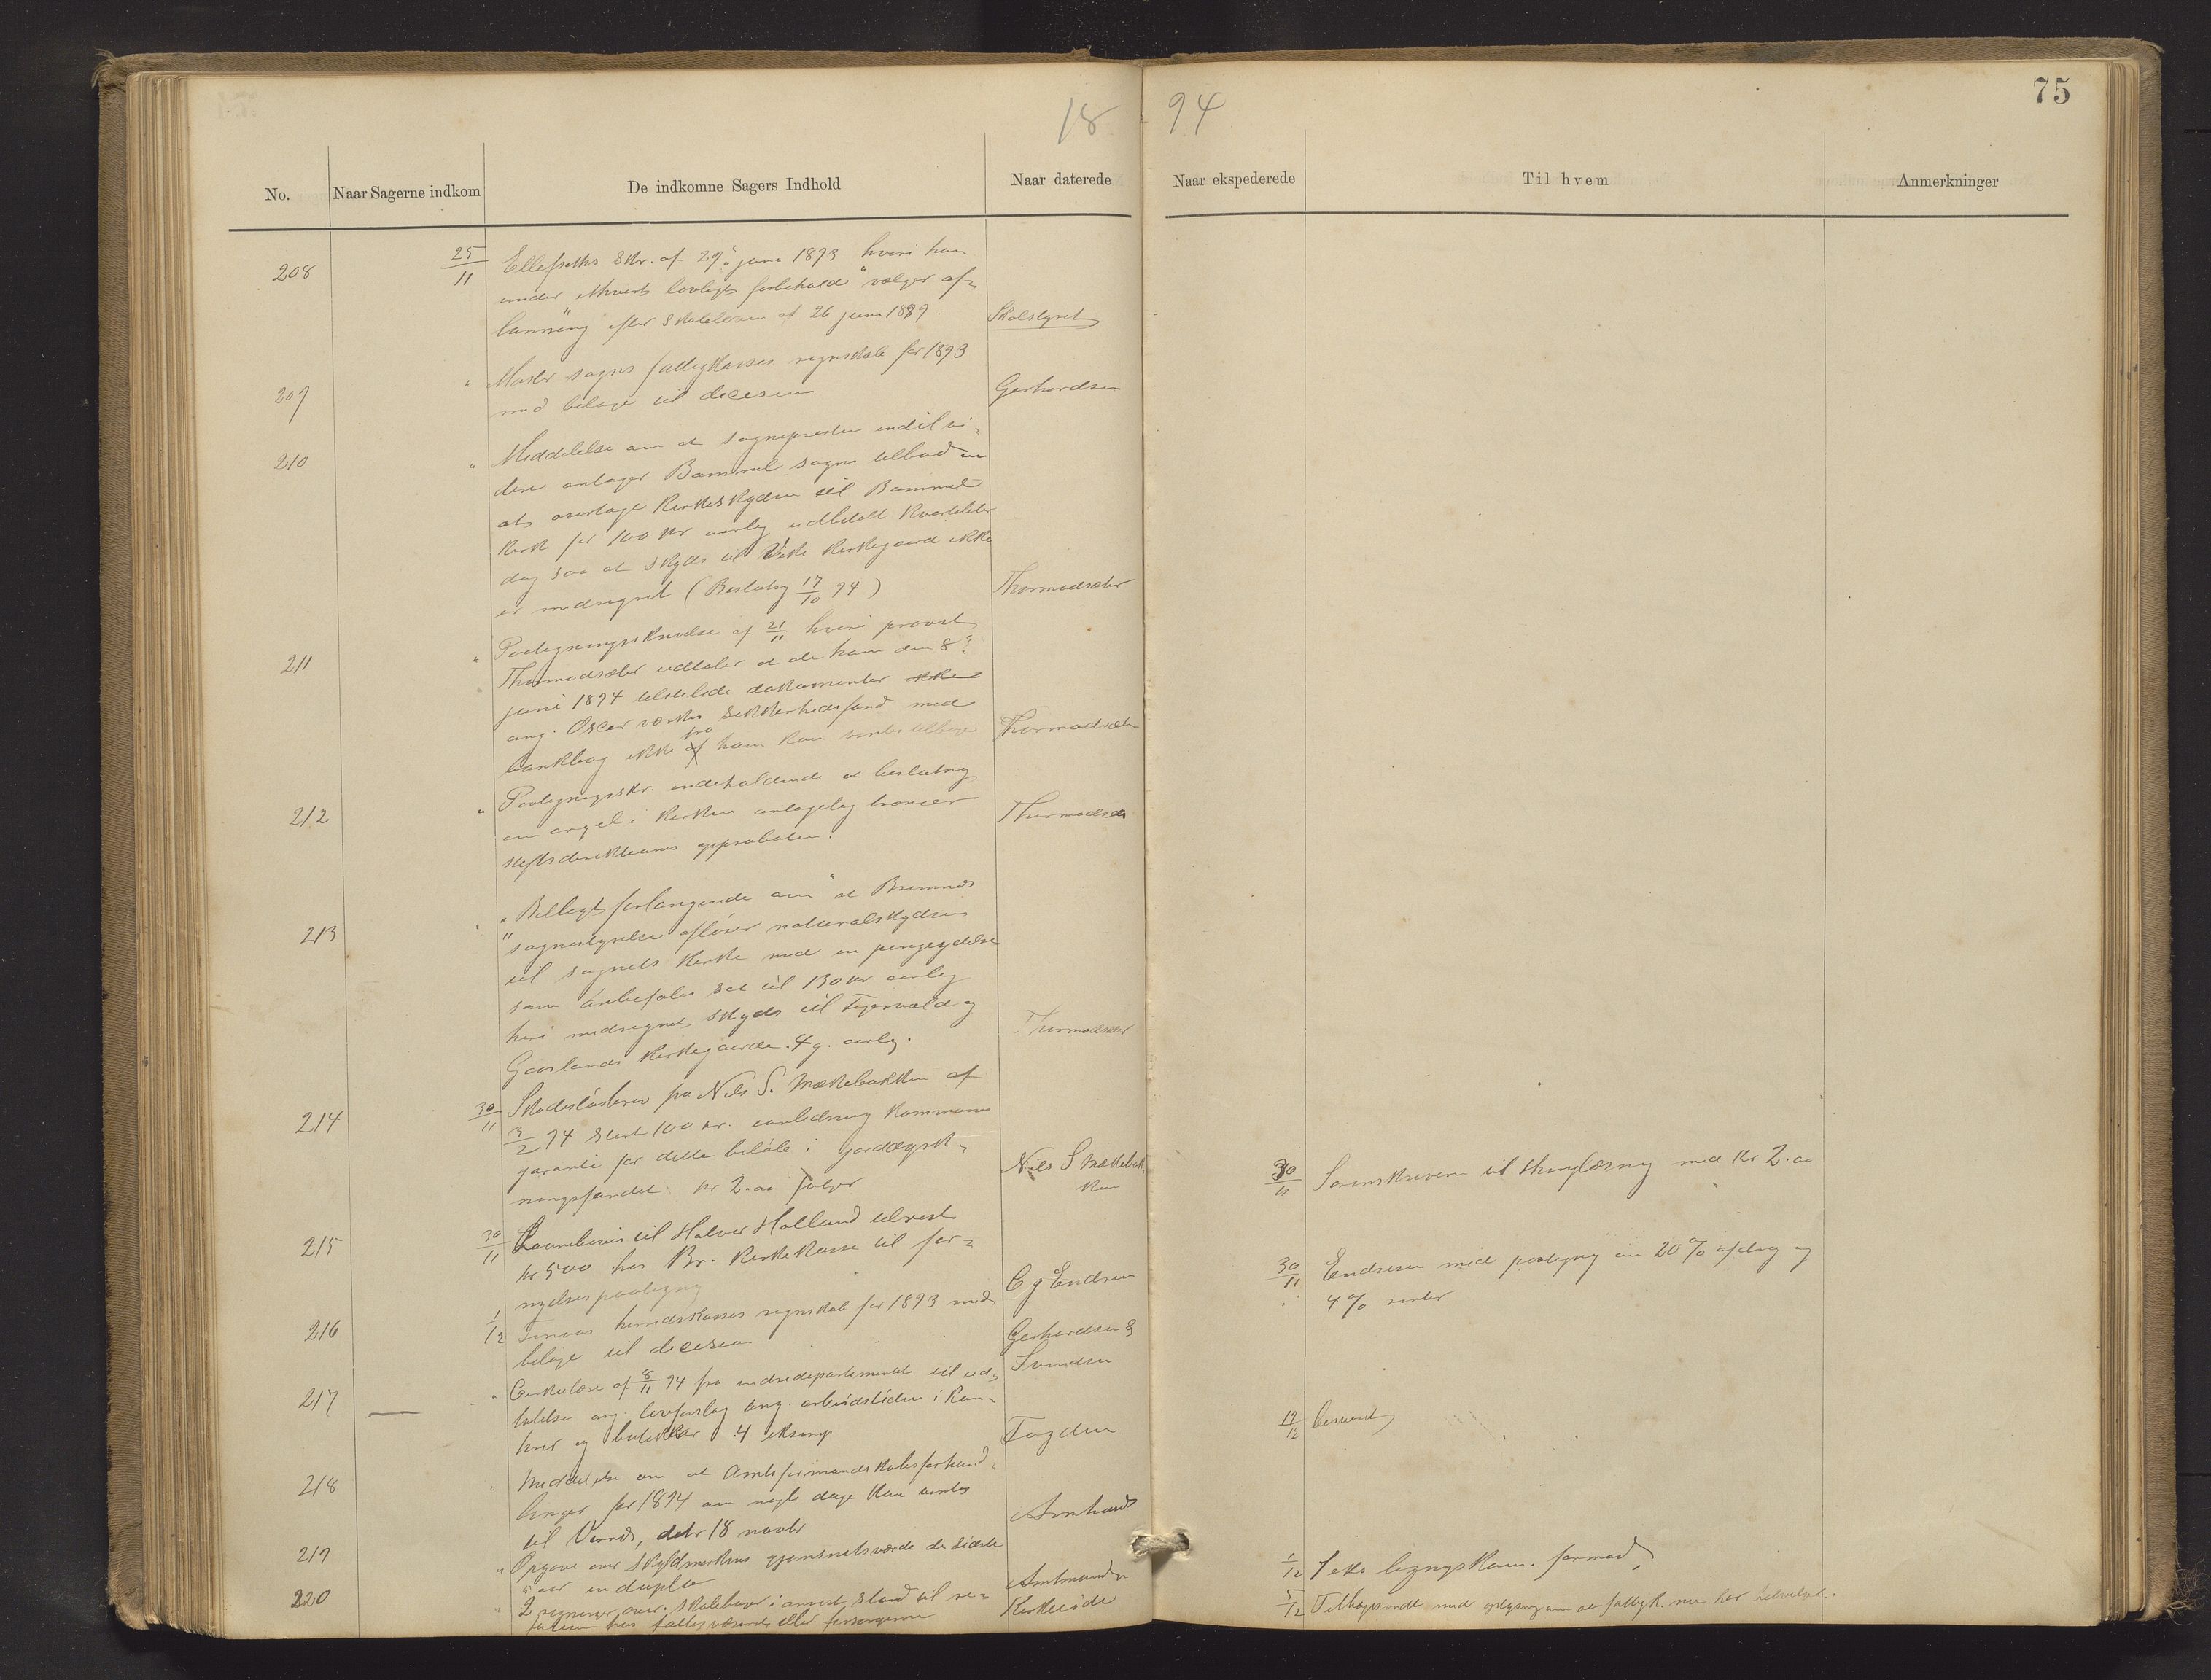 18 94
75
No. Naar Sagerne indkom De indkomne Sagers Indhold Naar daterede Naar ekspederede Til hvem Anmerkninger
208 25/11 Ellefseths Skr. af 29 juni 1893 hvori han
under ethvert lovligt forbehold vælger af-
lønning efter Skoleloven af 26 juni 1889. Skolstyret
209 " Moster sogns fattigkasses regnskab for 1893
med bilage til decision Gerhardsen
210 " Meddelelse om at sognepresten indtil vi-
dere antager Bømmel sogns tilbud om
at overtage Kirkeskydsen til Bømmel
Kirke for 100 Kr aarlig udbetalt Kvartaler
dog saa at skyds til Kirkegaard ikke
er medregnet (Beslutng 17/10 94) Thormodsæter
211 " Paategningsskrivelse af 21/11 hvori provst
Thormodsæter udtaler at de ham den 8
juni 1894 tilstilede dokumenter
ang. Oscar værks Sikkerhedsfond med
bankbog ikke fra ham kan ventes tilbage Thormodsæter
212 " Paategningsskr. indeholdende at beslutng
om orgel i Kirken antagelig trænger
stiftsdirektionens approbation. Thormodsæter
213 " Billigt forlangende om at Bremnes
sognestyrelse afløser naturalskydsen
til sognets Kirke med en pengeydelse
som anbefales sat til 130 Kr aarlig
heri medregnet skyds til og
Goslands Kirkegaarde 4 g. aarlig. Thormodsæter
214 30/11 Skadesløsbrev fra Nils S. Mækebakken af
3/2 94 Stort 100 kr. anledning Kommunens
garanti for dette beløb i jorddyrk-
ningsfondet Kr 2.00 følger Nils S Mækebak
ken 30/11 Sorenskriveren til thinglæsning med Kr 2.00
215 30/11 Laanebevis til Halvor Hølland tilrest
Kr 500 hos Br. Kirkekasse til for-
nyelsespaategng C g Endresen 30/11 Endresen med paategng om 20% afdrag og
4% renter
216 1/12 Finnaas herredskasses regnskab for 1893 med
bilage til decision Gerhardsen &
Svendsen
217 " Cirkulære af 8/11 94 fra indredepartementet til ud-
talelse ang. lovforslag ang. arbeidstiden i Kon-
torer og butikker 4 eksemp Fogden 19/12 besvaret
218 " Meddelelse om at Amtsformandskabsforhand-
linger for 1894 om nogle dage kan ventes
til , datr 18 novbr Amtmand
219 " Opgave over Skyldmarkens gjennemsnitsværde de sidste
5 aar in duplo Amtmanden 1/12 1 eks lignngskom. formand
220 " 2 regninger over skolebøger i anvist Stand til re-
fusion hos fattigvæsenet eller forsørgerne Kirkeeide 5/12 Tilbagesendt med oplysng om at fattigk. nu har